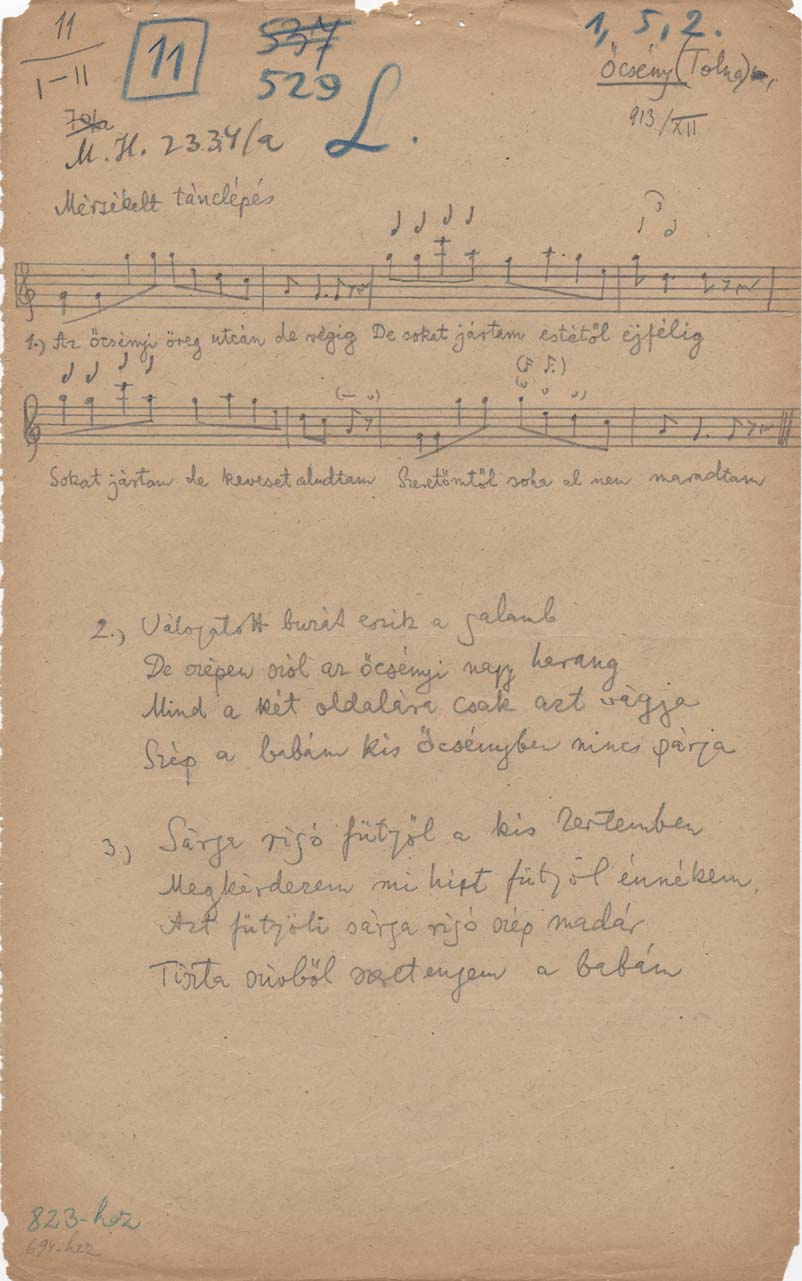 11
I-II
11
537
529
1, 5, 2.
Őcsény (Tolna)
913/XII
M. H. 2334/a
L.
Mérsékelt tánclépés
1.) Az őcsényi öreg utcán de végig De sokat jártam estétől éjfélig
Sokat jártam de keveset aludtam Szeretőmtől soha el nem maradtam
2.) Válogatott buzát eszik a galamb
De szépen szól az őcsényi nagy harang
Mind a két oldalára csak azt vágja
Szép a babám kis Őcsényben nincs párja
3.) Sárga rigó fütyöl a kis kertemben
Megkérdezem mi hirt fütyöl énnékem,
Azt fütyöli sárga rigó szép madár
Tiszta szivből szeret engem a babám
823-hoz
694-hez